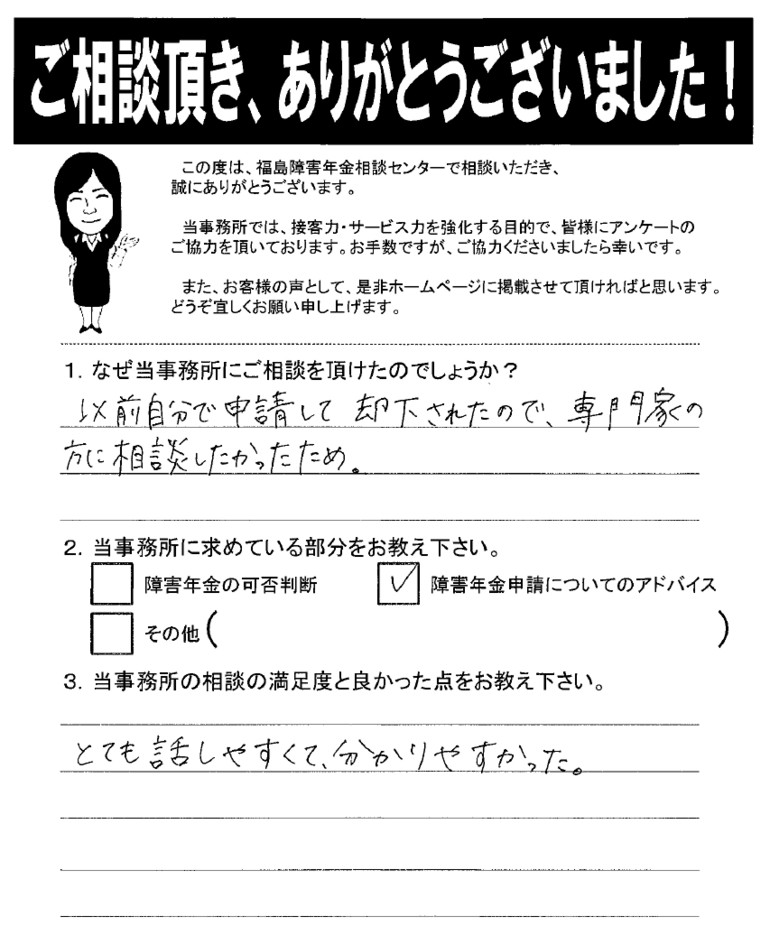 ご相談頂き、ありがとうございました！
この度は、福島障害年金相談センターで相談いただき、
誠にありがとうございます。
当事務所では、接客力・サービス力を強化する目的で、皆様にアンケートの
ご協力を頂いております。お手数ですが、ご協力くださいましたら幸いです。
また、お客様の声として、是非ホームページに掲載させて頂ければと思います。
どうぞ宜しくお願い申し上げます。
1．なぜ当事務所にご相談を頂けたのでしょうか？
以前自分で申請して却下されたので、専門家の
方に相談したかったため。
2．当事務所に求めている部分をお教え下さい。
障害年金の可否判断 ✓ 障害年金申請についてのアドバイス
その他（ ）
3．当事務所の相談の満足度と良かった点をお教え下さい。
とても話しやすくて、分かりやすかった。